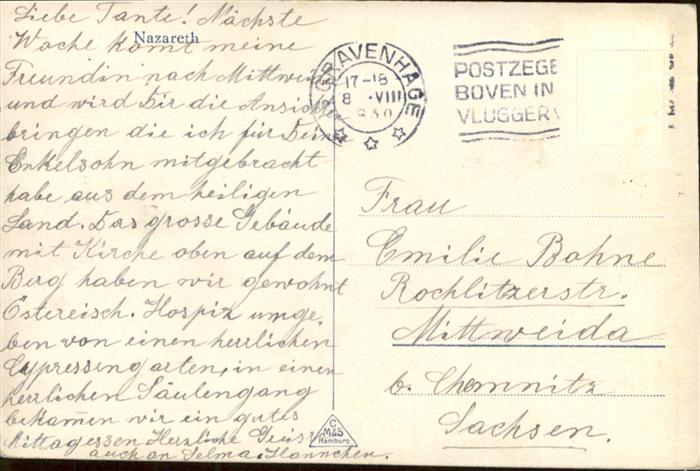 Liebe Tante! Nächste
Woche komt meine
Nazareth
Freundin nach Mittweida
und wird Dir die Ansichten
bringen die ich für Deine
Enkelsohn mitgebracht
habe aus dem heiligen
Land. Das grosse Gebäude
mit Kirche oben auf dem
Berg haben wir gewohnt
Östereisch. Hospiz umge,
ben von einen herrlichen
Cypressengarten, in einen
herrlichen Säulengang
bekamen wir ein gutes
Mittagessen Herzliche Grüsse
auch an Selma. Hannchen.
'S GRAVENHAGE
17-18
8 VIII
POSTZEGE
BOVEN IN
VLUGGER
Frau
Emilie Bohne
Rochlitzerstr.
Mittweida
b. Chemnitz
Sachsen.
C
M&S
Hamburg